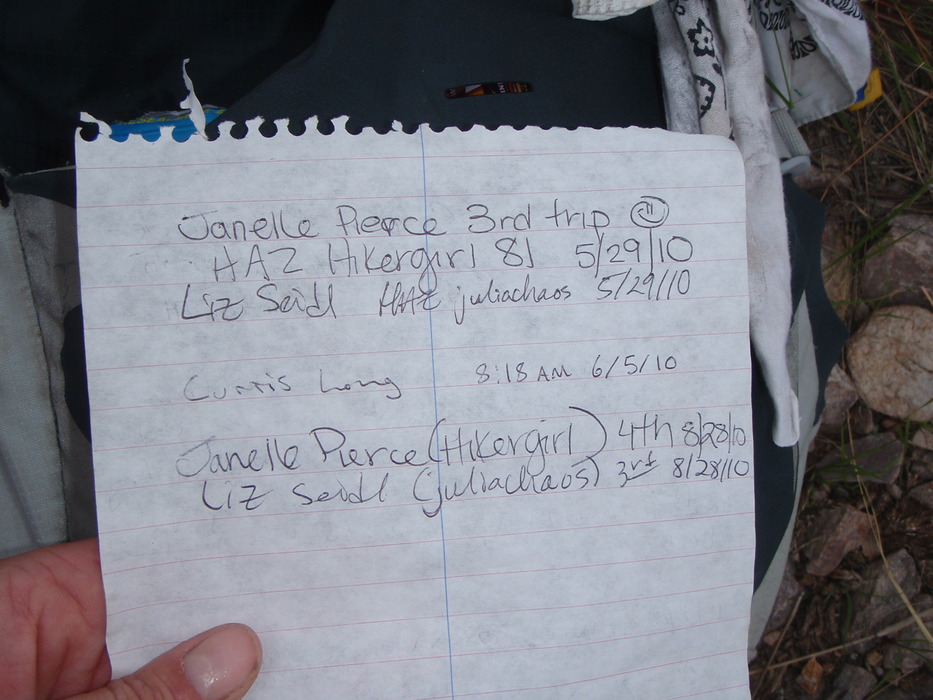 Janelle Pierce 3rd trip
HAZ Hikergirl 81 5/29/10
Liz Seidl HAZ juliachaos 5/29/10
Curtis Long 8:18 AM 6/5/10
Janelle Pierce (Hikergirl) 4th 8/28/10
Liz Seidl (juliachaos) 3rd 8/28/10